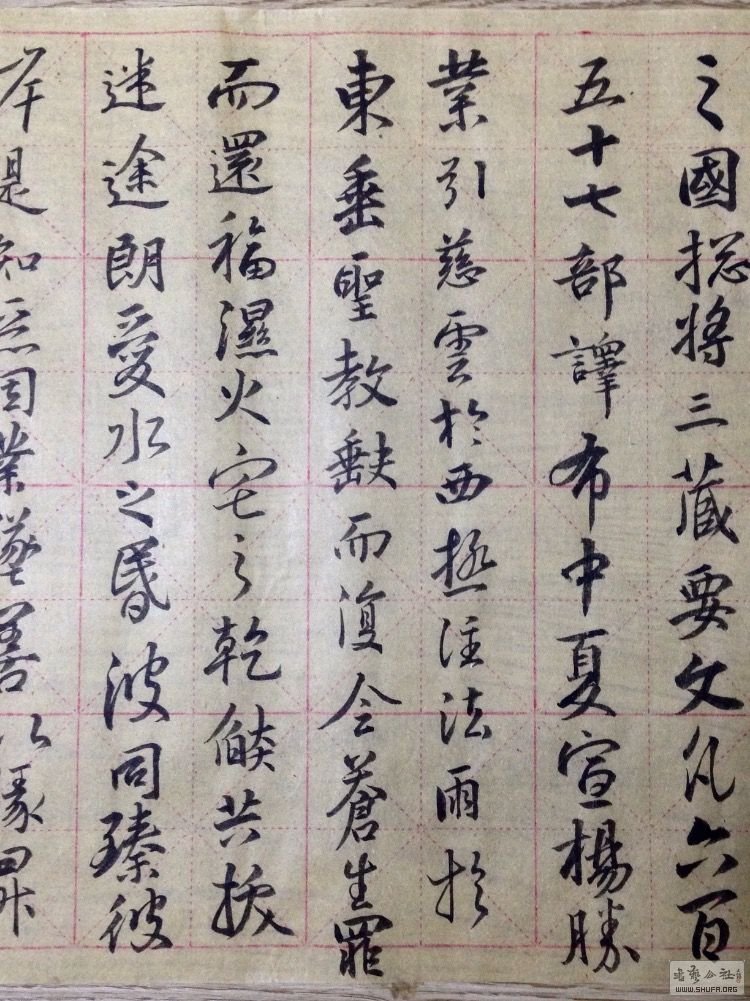 之國捴將三藏要文凡六百
五十七部譯布中夏宣楊勝
業引慈雲於西極注法雨於
東垂聖教缺而復全蒼生罪
而還福濕火宅之乾焰共拔
迷途朗愛水之昏波同臻彼
岸是知惡因業墜善以緣昇
书艺公社
WWW.SHUFA.ORG